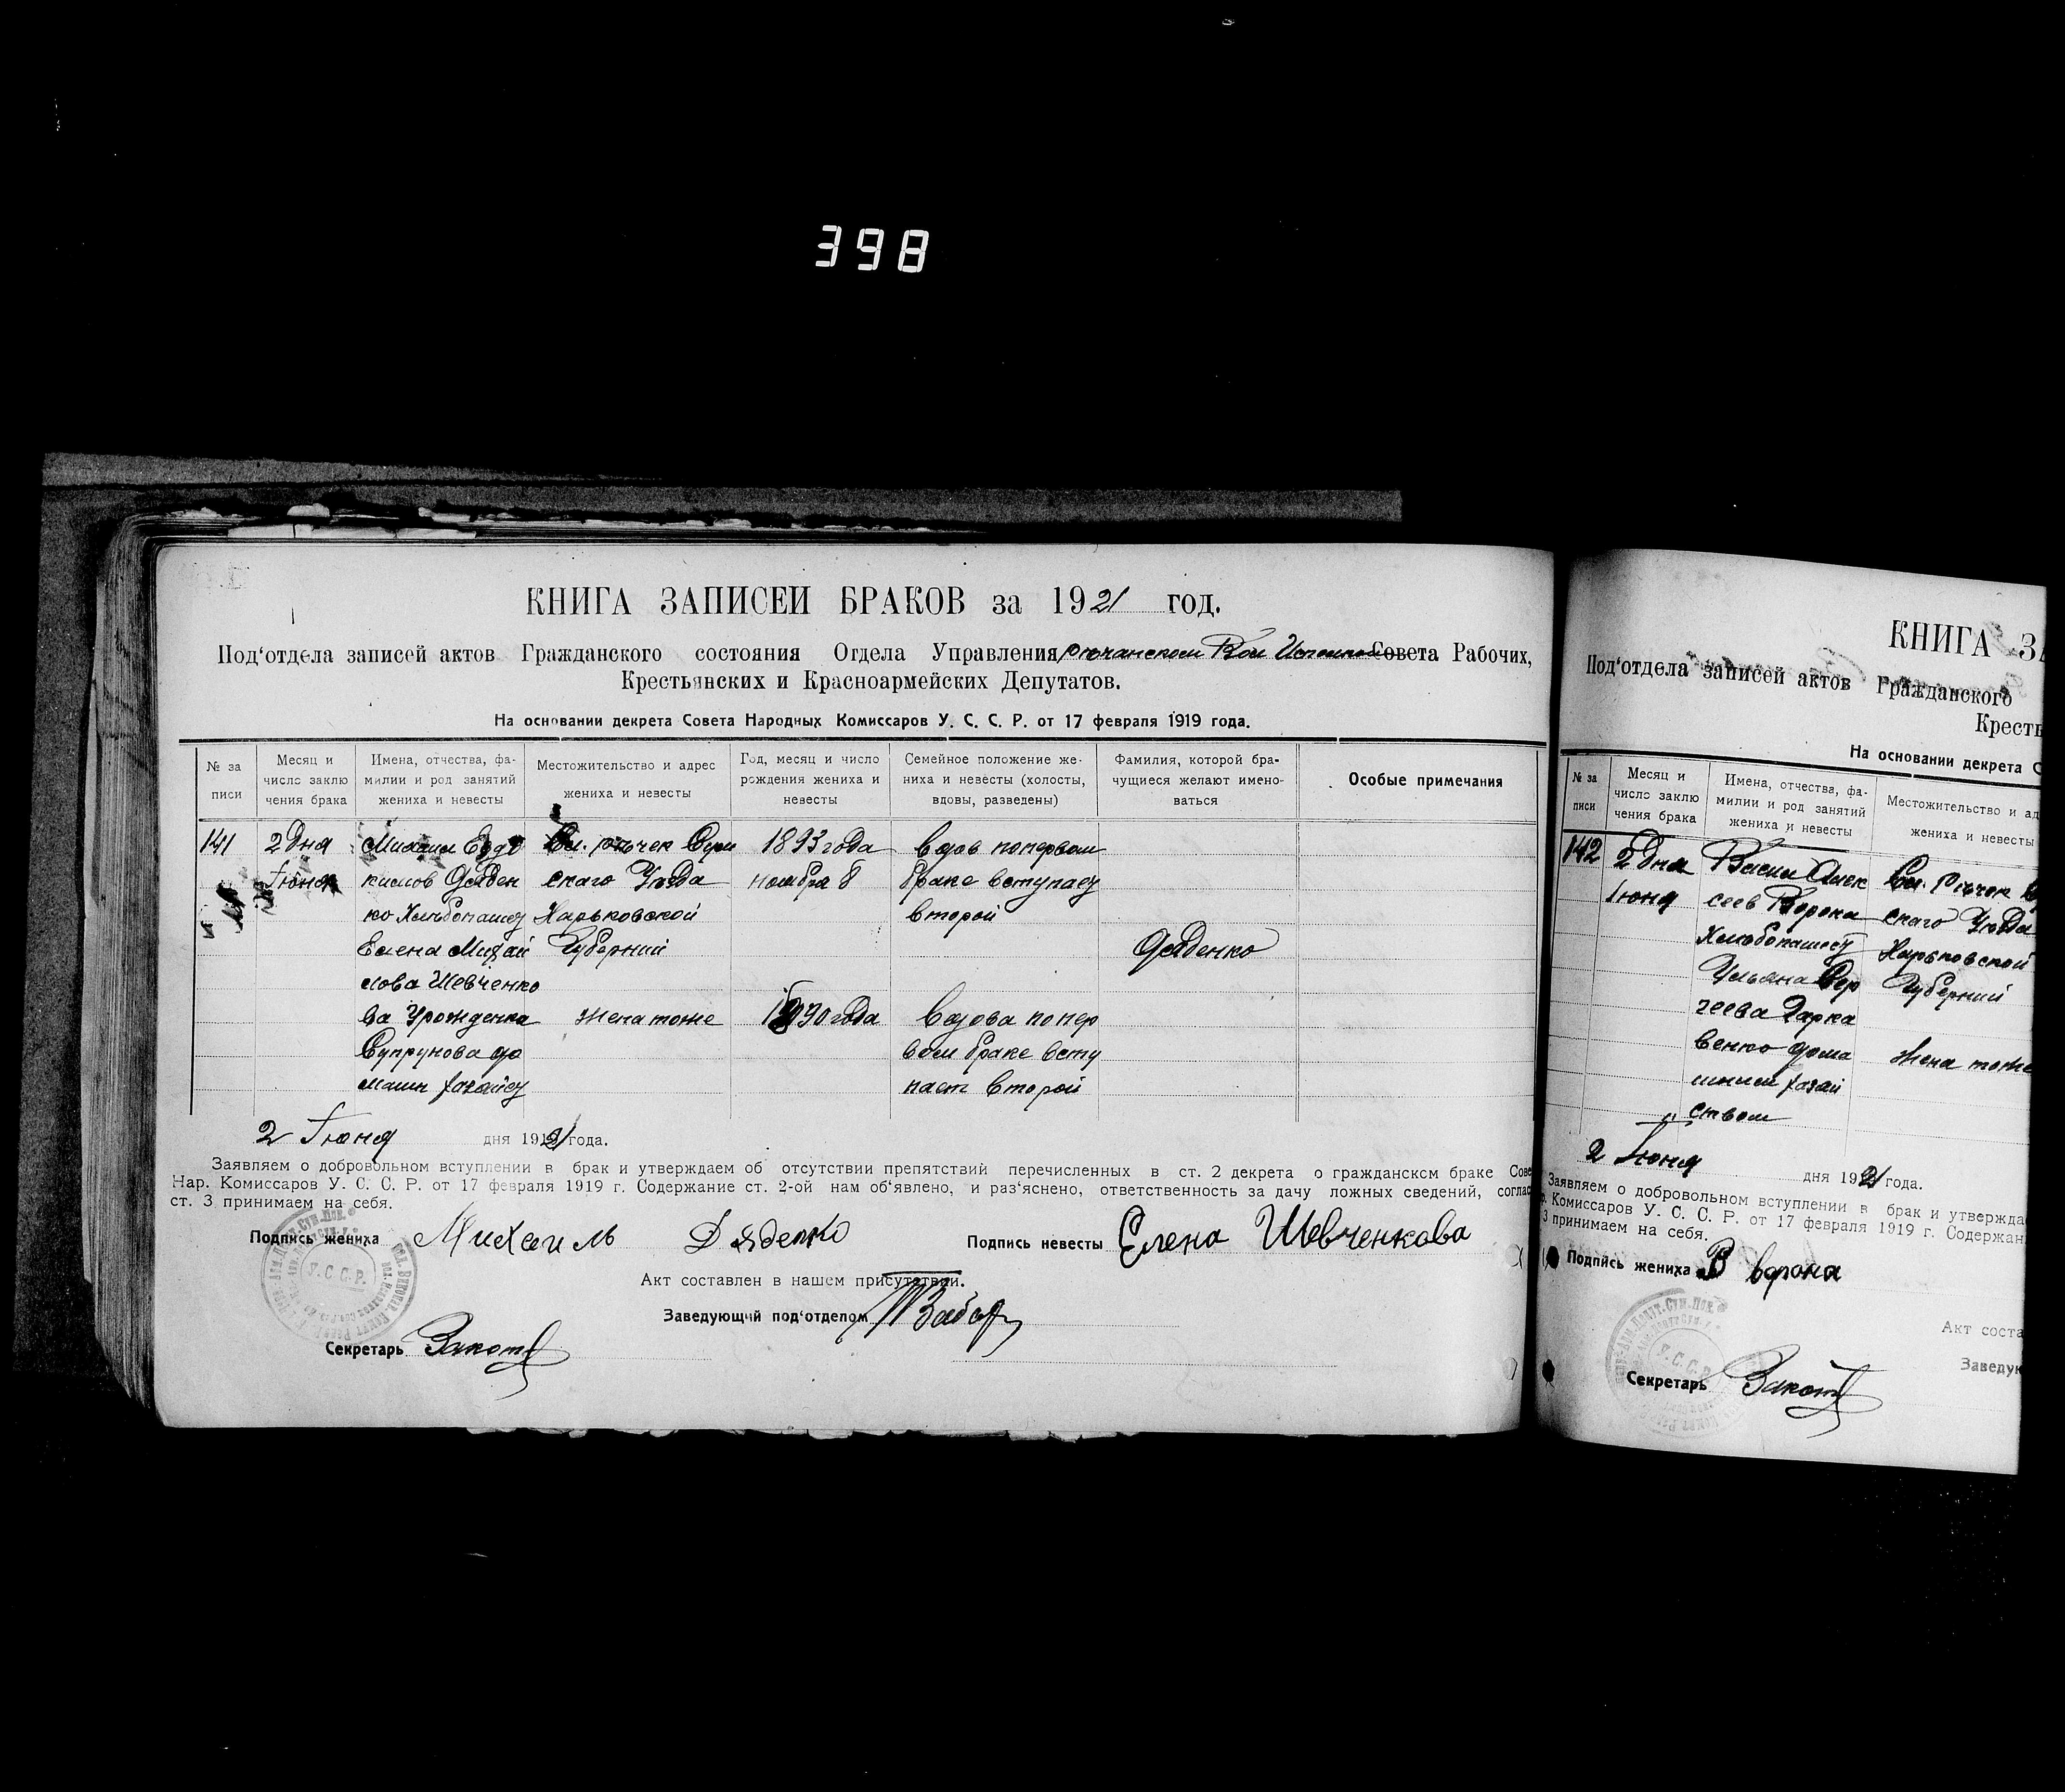 398
КНИГА ЗАПИСЕЙ БРАКОВ за 1921 год.
Под‘отдела записей актов Гражданского состояния Отдела Управления Совета Рабочих,
Крестьянских и Красноармейских Депутатов.
На основании декрета Совета Народных Комиссаров У. С. С. Р. от 17 февраля 1919 года.
№ за
писи
Месяц и
число заклю
чения брака
Имена, отчества, фа-
милии и род занятий
жениха и невесты
Местожительство и адрес
жениха и невесты
Год, месяц и число
рождения жениха и
невесты
Семейное положение же-
ниха и невесты (холосты,
вдовы, разведены)
Фамилия, которой бра-
чущиеся желают имено-
ваться
Особые примечания
141
2 дня
Июня
Михаил Евдо
кимов Дяден
ко Хлебопашец
Елена Михай
лова Шевченко
ва Урожденна
Супрунова до
машн хозайст
Сл. Речек Сум
скаго Уезда
Харьковской
Губерний
Жена тоже
1893 года
ноября 8
года
вдов попервом
браке вступает
второй
вдова по пер
вом браке всту
пает второй
Дяденко
2 Июня дня 1921 года.
Заявляем о добровольном вступлении в брак и утверждаем об отсутствии препятствий перечисленных в ст. 2 декрета о гражданском браке Сове
Нар. Комиссаров У. С. С. Р. от 17 февраля 1919 г. Содержание ст. 2-ой нам об‘явлено, и раз‘яснено, ответственность за дачу ложных сведений, соглас
ст. 3 принимаем на себя.
Подпись жениха Михаиль Дяденко
Подпись невесты Елена Шевченкова
Акт составлен в нашем присутствии.
Заведующий под‘отделом
Секретарь
У.С.С.Р.
КНИГА ЗА
Под‘отдела записей актов Гражданского
Кресть
На основании декрета С
№ за
писи
Месяц и
число заклю
чения брака
Имена, отчества, фа-
милии и род занятий
жениха и невесты
Местожительство и ад
жениха и невесты
142
2 дня
Июня
Васил Алек
сеев Ворона
Хлебопашест
Ульяна Сер
геева Харка
венко дома
шним хозай
ством
Сл. Речек
скаго Уезда
Харьковской
Губерний
Жена тоже
2 Июня дня 1921 года.
Заявляем о добровольном вступлении в брак и утвержда
р. Комиссаров У. С. С. Р. от 17 февраля 1919 г. Содержан
3 принимаем на себя.
Подпись жениха В Ворона
Акт соста
Заведую
Секретарь
У.С.С.Р.